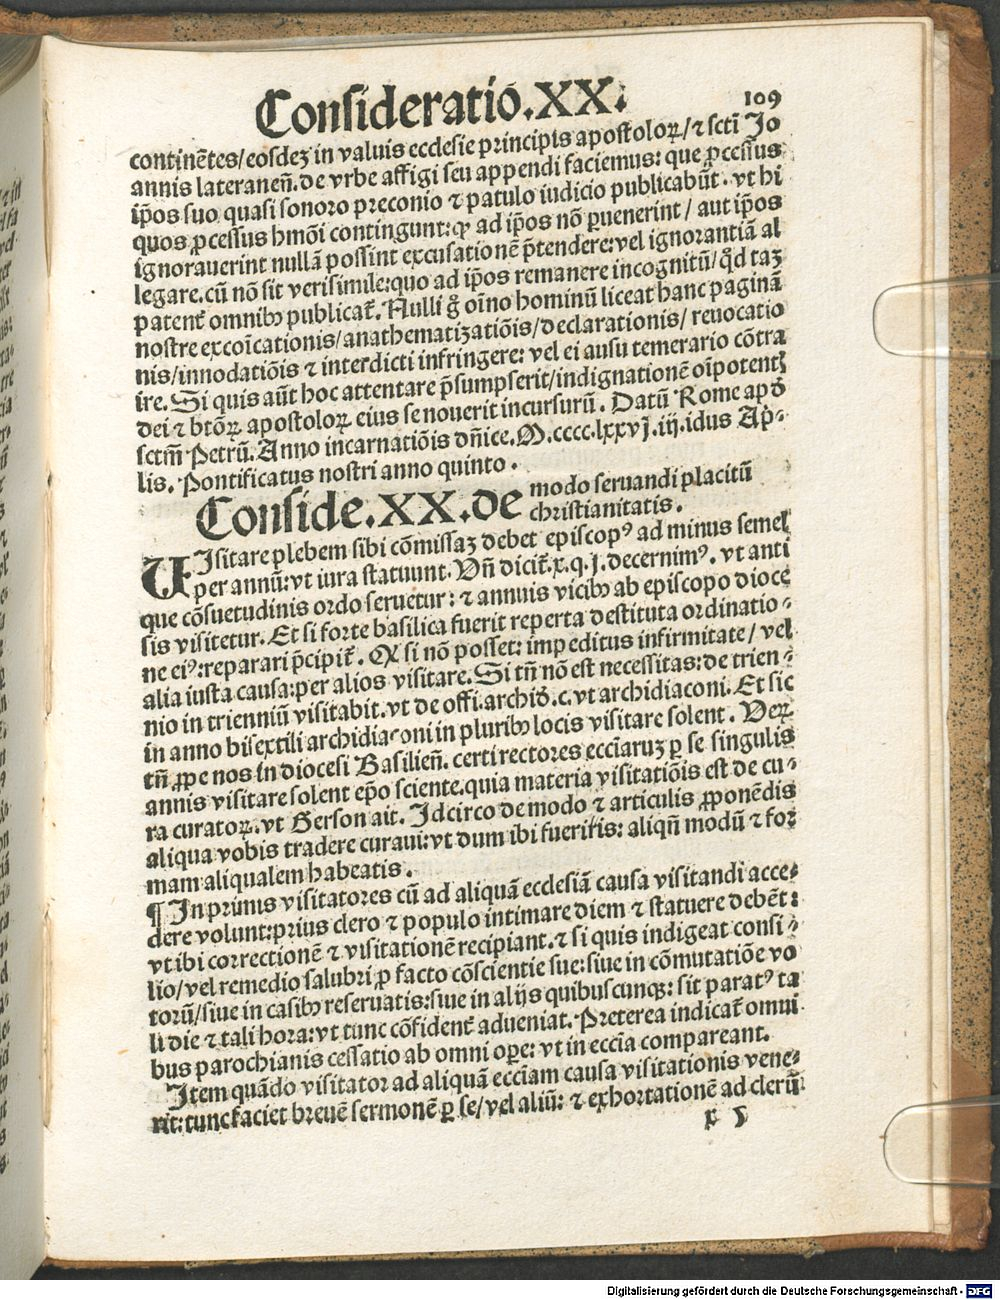 Consideratiō.XX.
109
continētes/eosdeꝫ in valuis ecclesie principis apostoloꝝ/⁊ scti Jo
annis lateraneñ. de vrbe affigi seu appendi faciemus: que ꝓcessus
ip̄os suo quasi sonoro preconio ⁊ patulo iudicio publicabūt. vt hi
quos ꝓcessus hmōi contingunt: ꝙ ad ip̄os nō ꝑuenerint/ aut ip̄os
ignorauerint nullā possint excusationē p̄tendere: vel ignorantiā al
legare. cū nō sit verisimile: quo ad ip̄os remanere incognitū/ q̇d taꝫ
patent̄ omnibꝰ publicat̄. Nulli g̊ oīno hominū liceat hanc paginā
nostre excoīcationis/anathematizatiōis/declarationis/ reuocatio
nis/innodatiōis ⁊ interdicti infringere: vel ei ausu temerario cōtra
ire. Si quis aūt hoc attentare p̄sumpserit/indignationē oīpotentꝭ
dei ⁊ btōꝝ apostoloꝝ eius se nouerit incursurū. Datū Rome apđ
sctm̄ Petrū. Anno incarnatiōis dn̄ice. M.cccc.lxxvj.iij.idus Ap̄-
lis. Pontificatus nostri anno quinto.
Conside.XX.de modo seruandi placitū
christianitatis.
VIsitare plebem sibi cōmissaꝫ debet episcopꝰ ad minus semel
per annū: vt iura statuunt. Vn̄ dicit̄.x.q.j. decernimꝰ. vt anti
que cōsuetudinis ordo seruetur: ⁊ annuis vicibꝰ ab episcopo dioce
sis visitetur. Et si forte basilica fuerit reperta destituta ordinatio-
ne eiꝰ: reparari p̄cipit̄. Q si nō posset: impeditus infirmitate/ vel
alia iusta causa: per alios visitare. Si tn̄ nō est necessitas: de trien-
nio in trienniū visitabit. vt de offi. archiđ. c. vt archidiaconi. Et sic
in anno bisextili archidiaconi in pluribꝰ locis visitare solent. Veꝝ
tn̄ ꝓpe nos in diocesi Basilieñ. certi rectores ecciaruꝫ ꝑ se singulis
annis visitare solent ep̄o sciente. quia materia visitatiōis est de cu-
ra curatoꝝ. vt Gerson ait. Idcirco de modo ⁊ articulis ꝓponēdis
aliqua vobis tradere curaui: vt dum ibi fueritis: aliqn̄ modū ⁊ for
mam aliqualem habeatis.
¶ In primis visitatores cū ad aliquā ecclesiā causa visitandi acce-
dere volunt: prius clero ⁊ populo intimare diem ⁊ statuere debēt:
vt ibi correctionē ⁊ visitationē recipiant. ⁊ si quis indigeat consi-
lio/ vel remedio salubri ꝓ facto cōscientie sue: siue in cōmutatiōe vo
torū/ siue in casibꝰ reseruatis: siue in alijs quibuscunqꝫ: sit paratꝰ ta
li die ⁊ tali hora: vt tunc cōfident̄ adueniat. Preterea indicat̄ omni
bus parochianis cessatio ab omni oꝑe: vt in eccia compareant.
Item quādo visitator ad aliquā ecciam causa visitationis vene-
rit: tunc faciet breuē sermonē ꝑ se/ vel aliū: ⁊ exhortationē ad clerū
Digitalisierung gefördert durch die Deutsche Forschungsgemeinschaft - DFG